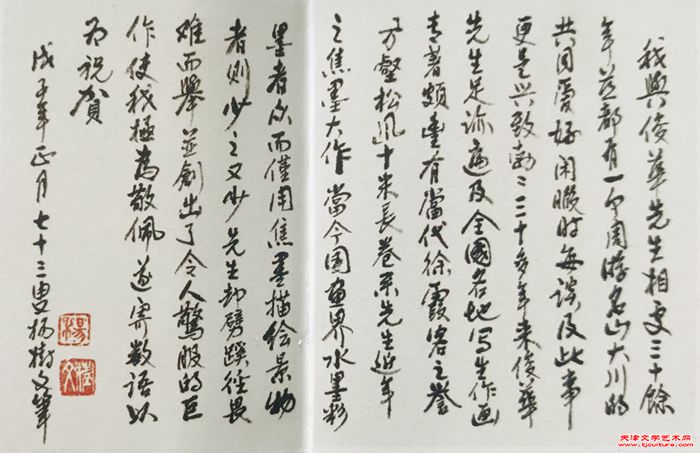 我與俊華先生相交三十餘
年並都有一个周游名山大川的
共同爱好闲暇时每談及此事
更是兴致勃二三十多年来俊華
先生足跡遍及全國名地写生作画
有著颇豊有當代徐霞客之誉
万壑松风十米長卷系先生近年
之焦墨大作當今國画界水墨彩
墨者众而僅用焦墨描绘景物
者則少之又少先生却劈蹊径畏
难而舉並創出了令人驚服的巨
作使我極為敬佩遂寄数语以
为祝賀
戊子年正月七十三叟杨樹文笔
楊
樹文
天津文学艺术网
www.tjculture.com